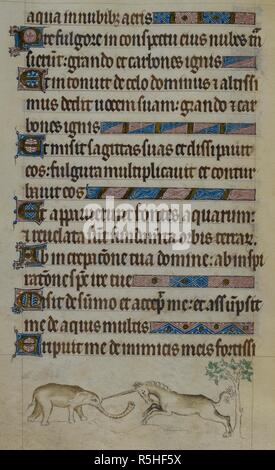 aqua in nubibus aeris
Pre fulgore in conspectu eius nubes tran
sierunt: grando et carbones ignis
Et intonuit de celo dominus: et altissi
mus dedit uocem suam: grando et car
bones ignis
Et misit sagittas suas et dissipauit
eos: fulgura multiplicauit et contur
bauit eos
Et apparuerunt fontes aquarum:
et reuelata sunt fundamenta orbis terrar.
Ab increpatione tua domine: ab inspi
ratione spiritus ire tue
Misit de summo et accepit me: et assumpsit
me de aquis multis
Eripuit me de inimicis meis fortissi
alamy
www.alamy.com - R5HF5X